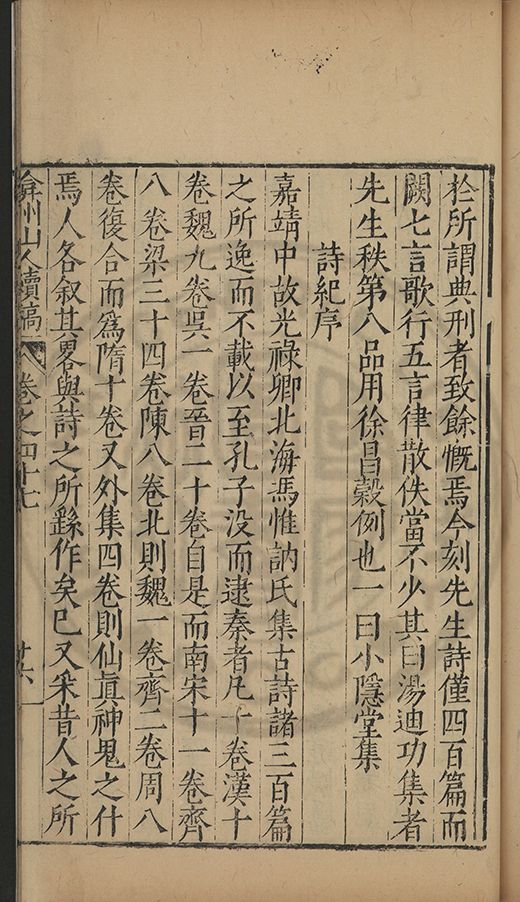 於所謂典刑者致餘慨焉今刻先生詩僅四百篇而
闕七言歌行五言律散佚當不少其曰湯迪功集者
先生秩第八品用徐昌穀例也一曰小隱堂集
詩紀序
嘉靖中故光祿卿北海馮惟訥氏集古詩諸三百篇
之所逸而不載以至孔子沒而逮秦者凡十卷漢十
卷魏九卷吳一卷晉二十卷自是而南宋十一卷齊
八卷梁三十四卷陳八卷北則魏一卷齊二卷周八
卷復合而爲隋十卷又外集四卷則仙眞神鬼之什
焉人各叙其畧與詩之所繇作矣已又采昔人之所
弇州山人續稿 卷之四十七 廿六